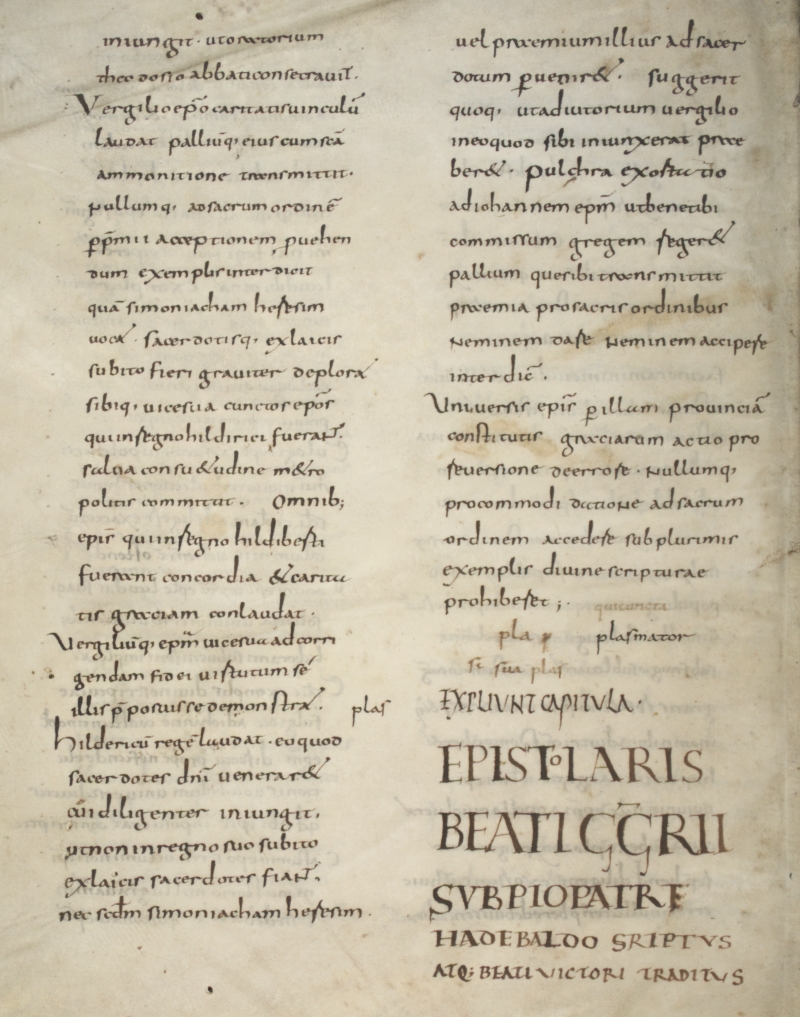 iniungit · ut oratorium
theodosio abbati consecravit.
Vergilio epõ caritatis vinculũ
laudat palliũq; eius cum scã
ammonitione transmittit.
Nullumq; ad sacrum ordinẽ
p̱ p̃mii acceptionem puehen
dum exemplis interdicit
quã simoniacham heresim
vocat. sacerdotisq; ex laicis
subito fieri graviter deplorat
sibiq; vices sua cunctos ep̃os
qui in regno hildirici fuerant.
salva consuetudine metro
politis committat. Omnib;
epĩs qui in regno hildiberti
fuerant concordia et carita
tis graciam conlaudat.
Vergiliũq; ep̃m vices sua ad corri
gendam fidei virtutum sẽ
illis p̱posuisse demonstrat. plas
Hildericũ regẽ laudat · eo quod
sacerdotes dñi veneraret
cui diligenter iniungit,
ut non in regno suo subito
ex laicis sacerdotes fiant,
nec scd̃m simoniacham heresim.
vel praemium illius ad sacer
dotum p̱venire&. suggerit
quoq; ut adiutorium vergilio
in eo quod sibi iniunxerat prae
beret. Pulchra exortatio
ad iohannem ep̃m ut bene tibi
commissum gregem regeret
pallium que sibi transmittit
praemia pro sacris ordinibus
Neminem dare Neminem accipere
interdic̃.
Universis epĩs p̱ illam provinciã
constitutis graciarum actio pro
reversione de errore. Nullumq;
pro commodi dictione ad sacrum
ordinem accedere sub plurimis
exemplis divine scripturae
prohiberet;
pla plasmator
si sua plas
EXPLIUNT CAPITULA.
EPISTOLARIS
BEATI GG̃RII
SUB PIO PATRE
HADEBALDO SCRIPTUS
ATQ; BEATI VICTORI TRADITUS